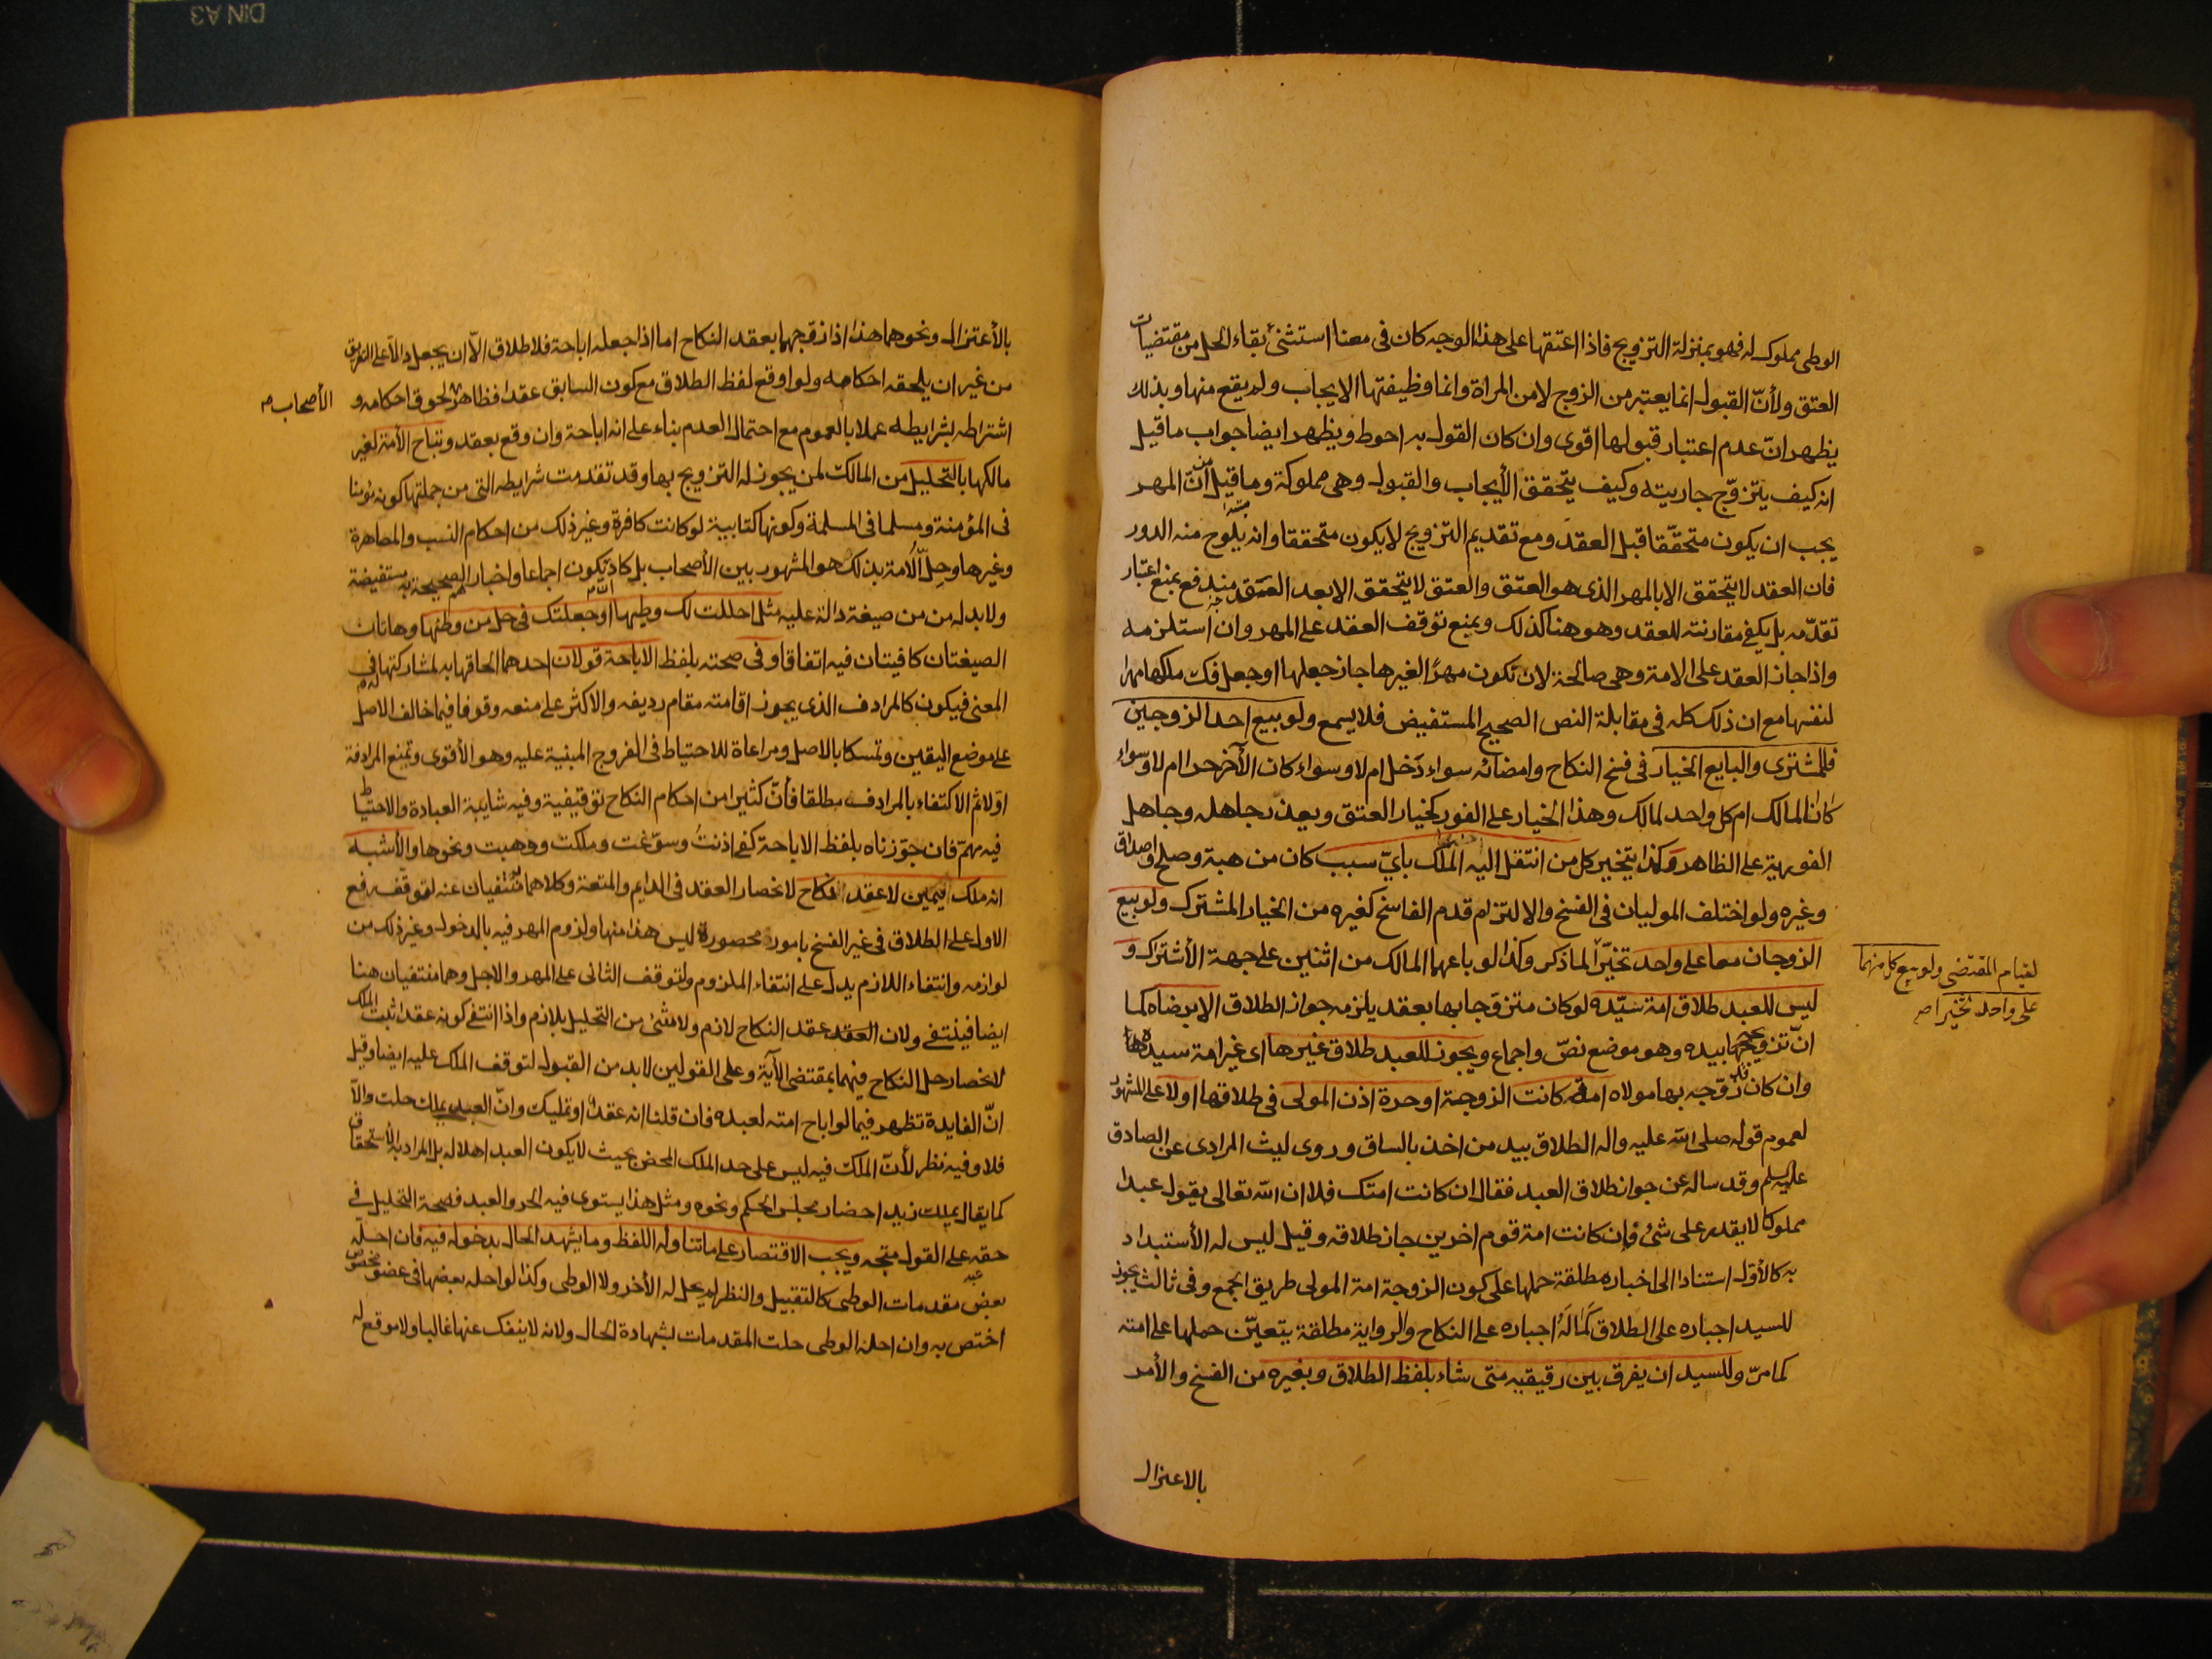 الوطى مملوك له فهو بمنزلة التزويج فاذا اعتقها على هذا الوجه كان فى معنا استثنئ بقاء الحل من مقتضيات
العتق ولأنّ القبول انما يعتبر من الزوج لا من المراة وانما وظيفتها الايجاب ولم يقع منها وبذلك
يظهر انّ عدم اعتبار قبولها اقوى وان كان القول به احوط ويظهر ايضا جواب ما قيل
انه كيف يتزوّج جاريته وكيف يتحقق الأيجاب والقبول وهى مملوكة وما قيل من أنّ المهر
يجب ان يكون متحقّقا قبل العقد ومع تقديم التزويج لا يكون متحققا وانه يلوح منه الدور
فان العقد لا يتحقق الا بالمهر الذى هو العتق والعتق لا يتحقق الا بعد العقد مندفع بمنع اعتبار
تقدّمه بل يكفى مقارنته للعقد وهو هنا كذلك وبمنع توقف العقد على المهر وان استلزمه
واذا جاز العقد على الامة وهى صالحة لان تكون مهرًا لغيرها جاز جعلها او جعل فك ملكها مهرا
لنفسها مع ان ذلك كله فى مقابلة النص الصحيح المستفيض فلا يسمع ولو بيع احد الزوجين
فللمشترى والبايع الخيار فى فسخ النكاح وامضائه سواء دخل ام لا وسواء كان الأخر حرا ام لا وسواء
كانا لمالك ام كل واحد لمالك وهذا الخيار على الفور كخيار العتق ويعذر جاهله وجاهل
الفورية على الظاهر وكذا يتخير كل من انتقل اليه الملك بأيّ سبب كان من هبة وصلح واصداق
وغيره ولو اختلف الموليان فى الفسخ والالتزام قدم الفاسخ كغيره من الخيار المشترك ولو بيع
الزوجان معا على واحد تخيّر لما ذكر وكذا لو باعهما المالك من اثنين على جهة الأشتراك و
لقيام المقتضى ولو بيع كل منهما
على واحد تخيرا صح
ليس للعبد طلاق امة سيّده لو كان متزوجا بها بعقد يلزمه جواز الطلاق الا برضاه كما
انّ تزويجها بيده وهو موضع نصّ واجماع ويجوز للعبد طلاق غيرها اى غير امة سيده
وان كان قد زوّجه بها مولاه امة كانت الزوجة او حرة اذن المولى فى طلاقها اولا على المشهور
لعموم قوله صلى الله عليه واله الطلاق بيد من اخذ بالساق وروى ليث المرادى عن الصادق
عليه السلم وقد ساله عن جواز طلاق العبد فقال ان كانت امتك فلا ان الله تعالى يقول عبدا
مملوكا لا يقدر على شئ وان كانت امة قوم اخرين جاز طلاقه وقيل ليس له الأستبداد
به كالأوّل استنادا الى اخبار مطلقة حملها على كون الزوجة امة المولى طريق الجمع وفى ثالث يجوز
للسيد اجباره على الطلاق كما له اجباره على النكاح والرواية مطلقة يتعيّن حملها على امته
كما مرّ وللسيد ان يفرق بين رقيقيه متى شاء بلفظ الطلاق وبغيره من الفسخ والأمر
بالاعتزال
بالأعتزال ونحوهما هذا اذا زوّجهما بعقد النكاح اما اذا جعله اباحة فلا طلاق الاّ ان يجعل دالا على التفريق
من غير ان يلحقه احكامه ولو اوقع لفظ الطلاق مع كون السابق عقدا فظاهر الأصحاب لحوق احكامه و
الأصحاب م
اشتراطه بشرايطه عملا بالعموم مع احتمال العدم بناء على انه اباحة وان وقع بعقد وتباح الأمة لغير
مالكها بالتحليل من المالك لمن يجوز له التزويج بها وقد تقدمت شرايطه التى من جملتها كونه مؤمنا
فى المؤمنة ومسلما فى المسلمة وكونها كتابية لو كانت كافرة وغير ذلك من احكام النسب والمصاهرة
وغيرها وحلّ الأمة بذلك هو المشهور بين الأصحاب بل كاد يكون اجماعا واخبار الصحيحة به مستفيضة
ولا بد له من من صيغة دالة عليه مثل احللت لك وطيها او جعلتك فى حل من وطئها وهاتان
الصيغتان كافيتان فيه اتفاقا وفى صحته بلفظ الاباحة قولان احدهما الحاقها به لمشاركتها له فى
المعنى فيكون كالمرادف الذى يجوز اقامته مقام رديفه والاكثر على منعه وقوفا فيما خالف الاصل
على موضع اليقين وتمسكا بالاصل ومراعاة للاحتياط فى الفروج المبنية عليه وهو الأقوى وتمنع المرادفة
اولا ثم الاكتفاء بالمرادف مطلقا فأنّ كثيرا من احكام النكاح توقيفية وفيه شايبة العبادة والاحتياط
فيه مهمّ فان جوّزناه بلفظ الاباحة كفى اذنتُ وسوّغت وملكت ووهبت ونحوها والأشبه
انه ملك يمين لا عقد نكاح لانحصار العقد فى الدايم والمتعة وكلاهما منتفيان عنه لتوقف رفع
الاول على الطلاق فى غير الفسخ بامور محصورة ليس هذا منها ولزوم المهر فيه بالدخول وغير ذلك من
لوازمه وانتفاء اللازم يدل على انتفاء الملزوم ولتوقف الثانى على المهر والاجل وهما منتفيان هنا
ايضا فينتفى ولان العقد عقد النكاح لازم ولا شئ من التحليل بلازم واذا انتفى كونه عقدا ثبت الملك
لانحصار حل النكاح فيهما بمقتضى الآية وعلى القولين لا بد من القبول لتوقف الملك عليه ايضا وقيل
انّ الفايدة تظهر فيما لو اباح امته لعبده فان قلنا انه عقد او تمليك وانّ العبد يملك حلت والاّ
فلا وفيه نظر لأنّ الملك فيه ليس على حد الملك المحض بحيث لا يكون العبد اهلا له بل المراد به الأستحقاق
كما يقال يملك زيد احضار مجلس الحكم ونحوه ومثل هذا يستوى فيه الحر والعبد فصحة التحليل فى
حقه على القول متجه ويجب الاقتصار على ما تناوله اللفظ وما يشهد الحال بدخوله فيه فان احلّه
بعض مقدمات الوطى كالتقبيل والنظر لم يحل له الأخر ولا الوطى وكذا لو احله بعضها فى عضو مخصوص
اختص به وان احله الوطى حلت المقدمات بشهادة الحال ولانه لا ينفك عنها غالبا ولا موقع له
DIN A3